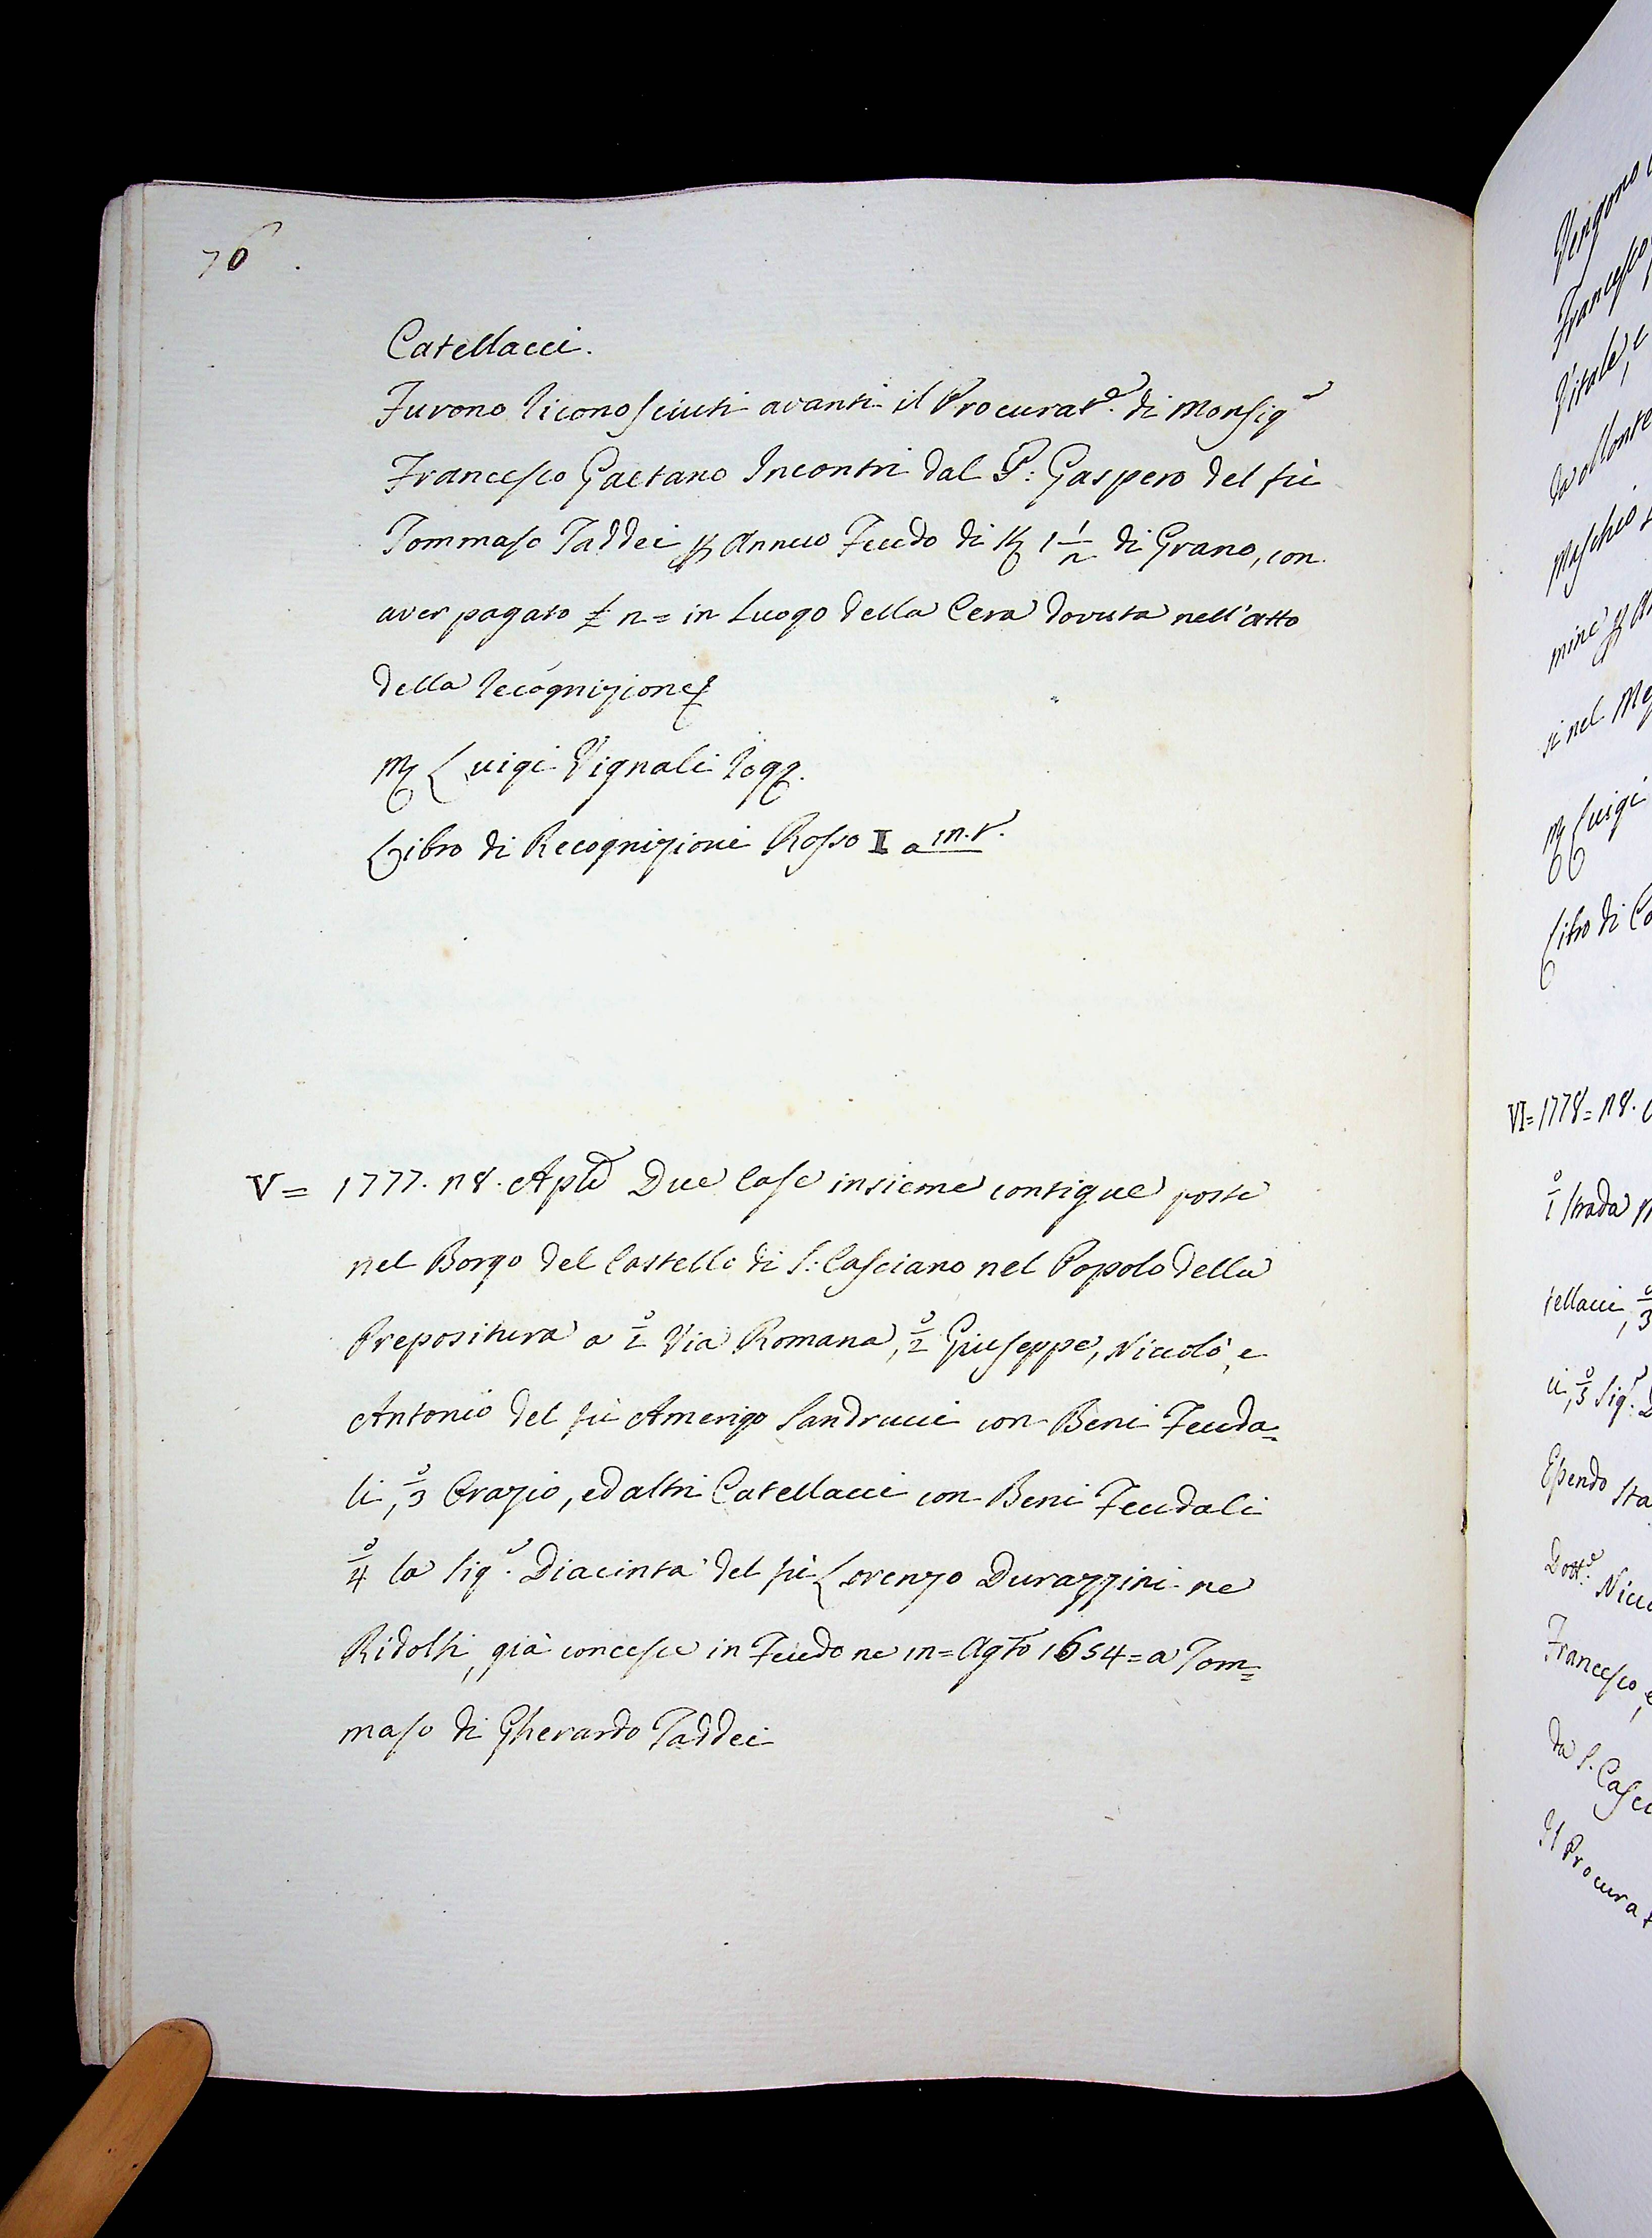 76.
Catellacci.
Furono riconosciuti avanti il Procurat.e di Monsig.r
Francesco Gaetano Incontri dal P: Gaspero del fù
Tommaso Taddei p Annuo Feudo di 1 1/2 di Grano, con
aver pagato £ 2 = in Luogo della Cera dovuta nell'atto
della recognizione
Luigi Vignali rog
Libro di Recognizioni Rosso I a
V = 1777. 28. Aple Due Case insieme contigue poste
nel Borgo del Castello di S: Casciano nel Popolo della
Prepositura a 1° Via Romana, 2° Giuseppe, Niccolò, e
Antonio del fù Amerigo Sandrucci con Beni Feuda=
li, 3° Orazio, ed altri Catellacci con Beni Feudali
4° la Sig.a Diacinta del fù Lorenzo Durazzini ne
Ridolfi, già concesse in Feudo ne = Agto 1654 = a Tom=
maso di Gherardo Taddei
Vengono
Francesco
Vitale, e
da Monte
Maschio
mine p
si nel Me
Luigi
Libro di
VI = 1778 = 28.
1° Strada
tellacci, 3°
Sig.r
Essendo sta
Dott.e Nicc
Francesco, e
da S. Casci
Il Procurat